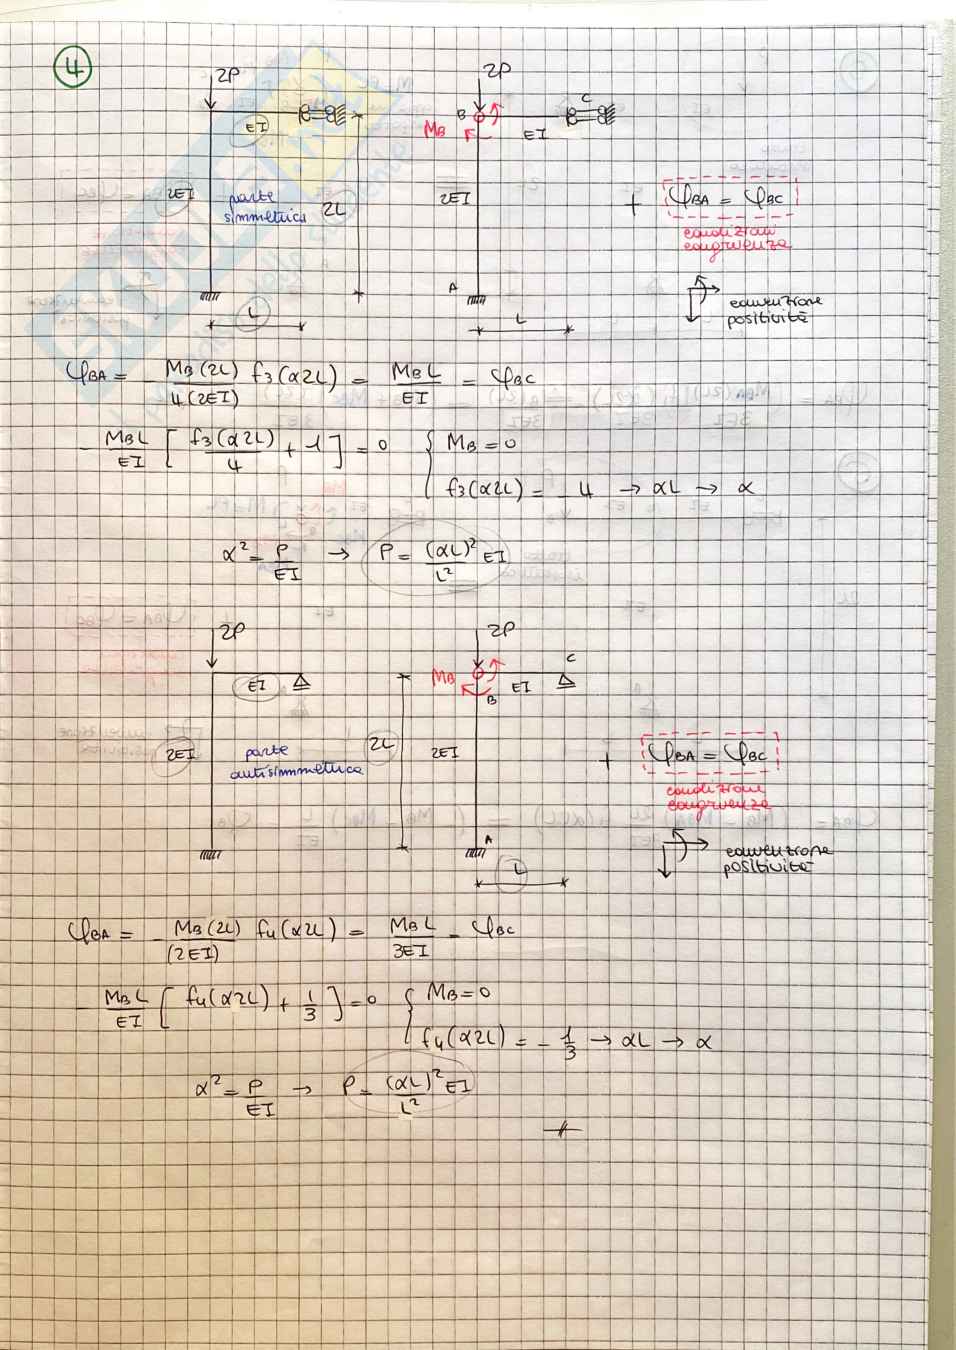 4
2P
EI
2EI
parte
simmetrica
2L
L
2P
B
MB
C
EI
2EI
A
L
+ φBA = φBC
condizioni
congruenza
convenzione
positività
φBA = - MB(2L)/4(2EI) f3(α2L) = MBL/EI = φBC
- MBL/EI [ f3(α2L)/4 + 1 ] = 0 { MB = 0
f3(α2L) = - 4 → αL → α
α² = P/EI → P = (αL)²/L² EI
2P
EI
2EI
parte
antisimmetrica
2L
2P
MB
B
C
EI
2EI
A
L
+ φBA = φBC
condizione
congruenza
convenzione
positività
φBA = - MB(2L)/(2EI) f4(α2L) = MBL/3EI = φBC
- MBL/EI [ f4(α2L) + 1/3 ] = 0 { MB = 0
f4(α2L) = - 1/3 → αL → α
α² = P/EI → P = (αL)²/L² EI